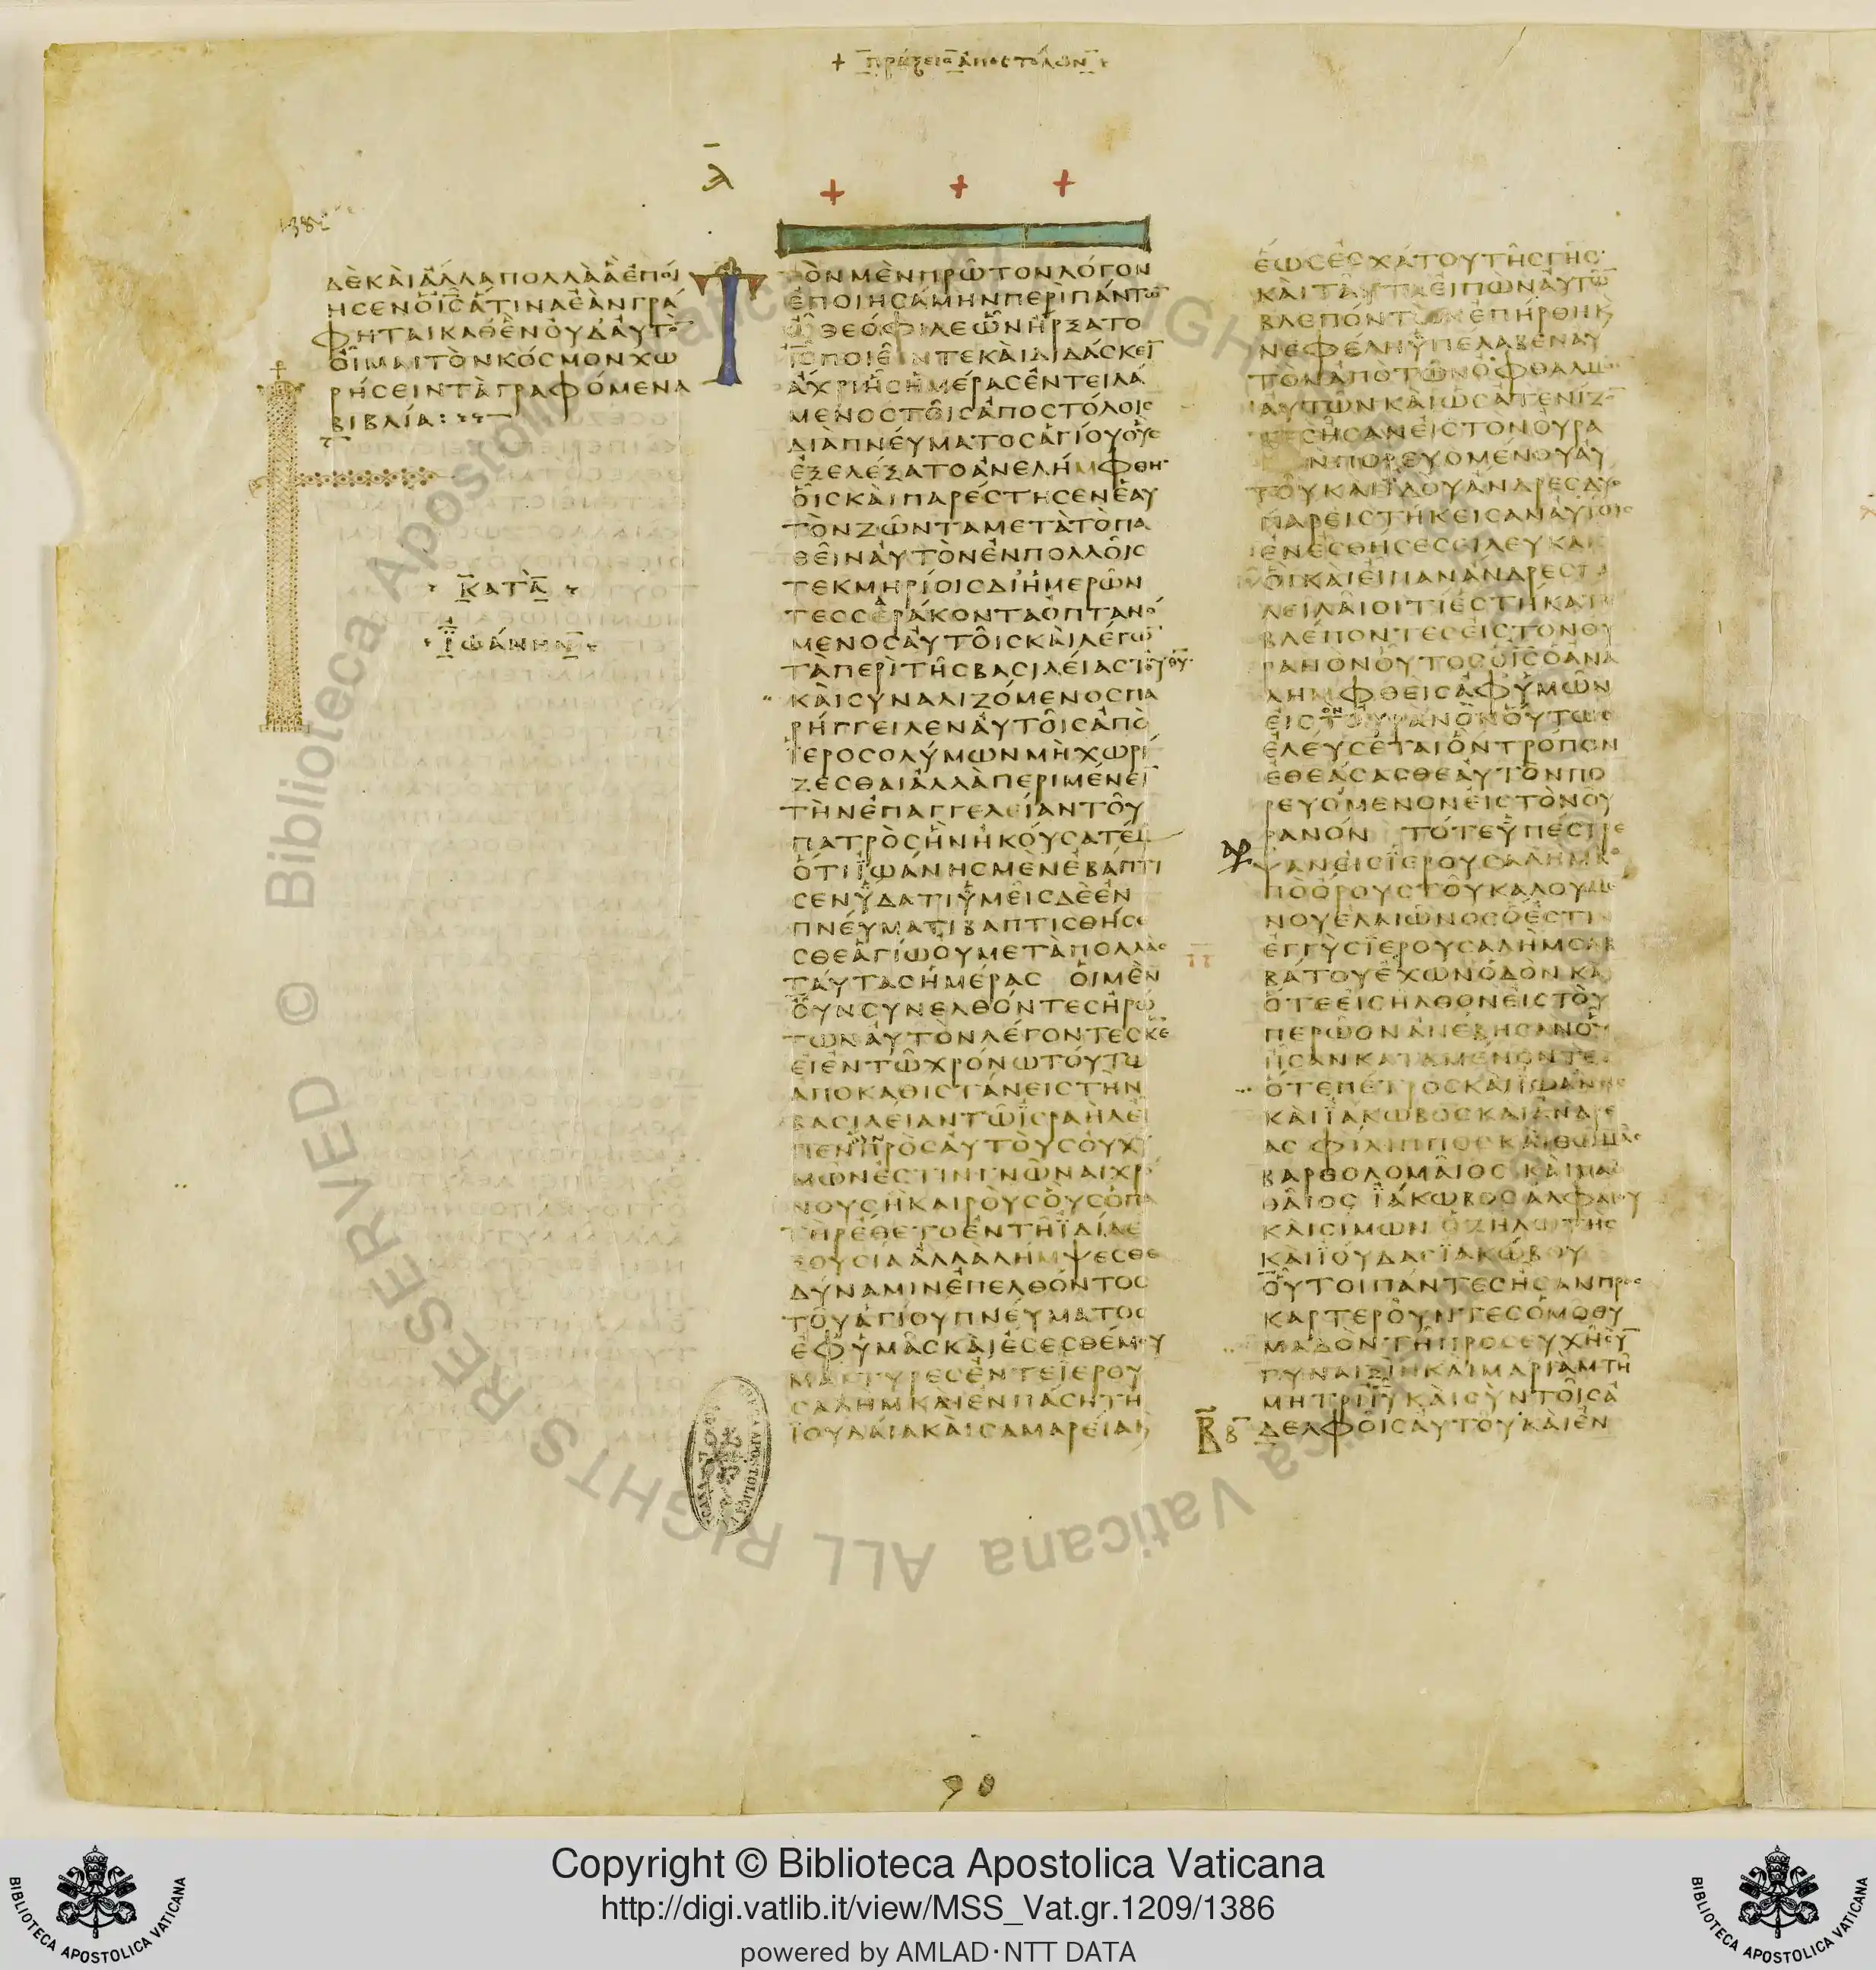 + πράξεισ ἀποστόλων
λ
1382
ΔΕ ΚΑΙ ΑΛΛΑ ΠΟΛΛΑ Α ΕΠΟΙ
ΗΣΕΝ Ο ΙΣ ΑΤΙΝΑ ΕΑΝ ΓΡΑ
ΦΗΤΑΙ ΚΑΘ ΕΝ ΟΥΔ ΑΥΤΟ̅
ΟΙΜΑΙ ΤΟΝ ΚΟΣΜΟΝ ΧΩ
ΡΗΣΕΙΝ ΤΑ ΓΡΑΦΟΜΕΝΑ
ΒΙΒΛΙΑ:
ΚΑΤΑ
ΙΩΑΝΗΝ
ΤΟΝ ΜΕΝ ΠΡΩΤΟΝ ΛΟΓΟΝ
ΕΠΟΙΗΣΑΜΗΝ ΠΕΡΙ ΠΑΝΤΩ̅
Ω ΘΕΟΦΙΛΕ ΩΝ ΗΡΞΑΤΟ
ΙΣ ΠΟΙΕΙΝ ΤΕ ΚΑΙ ΔΙΔΑΣΚΕΙ̅
ΑΧΡΙ ΗΣ ΗΜΕΡΑΣ ΕΝΤΕΙΛΑ
ΜΕΝΟΣ ΤΟΙΣ ΑΠΟΣΤΟΛΟΙΣ
ΔΙΑ ΠΝΕΥΜΑΤΟΣ ΑΓΙΟΥ ΟΥΣ
ΕΞΕΛΕΞΑΤΟ ΑΝΕΛΗΜΦΘΗ
ΟΙΣ ΚΑΙ ΠΑΡΕΣΤΗΣΕΝ ΕΑΥ
ΤΟΝ ΖΩΝΤΑ ΜΕΤΑ ΤΟ ΠΑ
ΘΕΙΝ ΑΥΤΟΝ ΕΝ ΠΟΛΛΟΙΣ
ΤΕΚΜΗΡΙΟΙΣ ΔΙ ΗΜΕΡΩΝ
ΤΕΣΣΕΡΑΚΟΝΤΑ ΟΠΤΑΝΟ
ΜΕΝΟΣ ΑΥΤΟΙΣ ΚΑΙ ΛΕΓΩ̅
ΤΑ ΠΕΡΙ ΤΗΣ ΒΑΣΙΛΕΙΑΣ ΤΟΥ ΘΥ
ΚΑΙ ΣΥΝΑΛΙΖΟΜΕΝΟΣ ΠΑ
ΡΗΓΓΕΙΛΕΝ ΑΥΤΟΙΣ ΑΠΟ
ΙΕΡΟΣΟΛΥΜΩΝ ΜΗ ΧΩΡΙ
ΖΕΣΘΑΙ ΑΛΛΑ ΠΕΡΙΜΕΝΕΙ̅
ΤΗΝ ΕΠΑΓΓΕΛΕΙΑΝ ΤΟΥ
ΠΑΤΡΟΣ ΗΝ ΗΚΟΥΣΑΤΕ
ΟΤΙ ΙΩΑΝΗΣ ΜΕΝ ΕΒΑΠΤΙ
ΣΕΝ ΥΔΑΤΙ ΥΜΕΙΣ ΔΕ ΕΝ
ΠΝΕΥΜΑΤΙ ΒΑΠΤΙΣΘΗΣΕ
ΣΘΕ ΑΓΙΩ ΟΥ ΜΕΤΑ ΠΟΛΛΑΣ
ΤΑΥΤΑΣ ΗΜΕΡΑΣ ΟΙ ΜΕΝ
ΟΥΝ ΣΥΝΕΛΘΟΝΤΕΣ ΗΡΩ
ΤΩΝ ΑΥΤΟΝ ΛΕΓΟΝΤΕΣ ΚΕ
ΕΙ ΕΝ ΤΩ ΧΡΟΝΩ ΤΟΥΤΩ
ΑΠΟΚΑΘΙΣΤΑΝΕΙΣ ΤΗΝ
ΒΑΣΙΛΕΙΑΝ ΤΩ ΙΣΡΑΗΛ ΕΙ
ΠΕΝ ΠΡΟΣ ΑΥΤΟΥΣ ΟΥΧ Υ
ΜΩΝ ΕΣΤΙΝ ΓΝΩΝΑΙ ΧΡΟ
ΝΟΥΣ Η ΚΑΙΡΟΥΣ ΟΥΣ Ο ΠΑ
ΤΗΡ ΕΘΕΤΟ ΕΝ ΤΗ ΙΔΙΑ Ε
ΞΟΥΣΙΑ ΑΛΛΑ ΛΗΜΨΕΣΘΕ
ΔΥΝΑΜΙΝ ΕΠΕΛΘΟΝΤΟΣ
ΤΟΥ ΑΓΙΟΥ ΠΝΕΥΜΑΤΟΣ
ΕΦ ΥΜΑΣ ΚΑΙ ΕΣΕΣΘΕ ΜΟΥ
ΜΑΡΤΥΡΕΣ ΕΝ ΤΕ ΙΕΡΟΥ
ΣΑΛΗΜ ΚΑΙ ΕΝ ΠΑΣΗ ΤΗ
ΙΟΥΔΑΙΑ ΚΑΙ ΣΑΜΑΡΕΙΑ Κ
ΕΩΣ ΕΣΧΑΤΟΥ ΤΗΣ ΓΗΣ
ΚΑΙ ΤΑΥΤΑ ΕΙΠΩΝ ΑΥΤΩ̅
ΒΛΕΠΟΝΤΩΝ ΕΠΗΡΘΗ Κ
ΝΕΦΕΛΗ ΥΠΕΛΑΒΕΝ ΑΥ
ΤΟΝ ΑΠΟ ΤΩΝ ΟΦΘΑΛΜΩ̅
ΑΥΤΩΝ ΚΑΙ ΩΣ ΑΤΕΝΙΖΟ̅
ΤΕΣ ΗΣΑΝ ΕΙΣ ΤΟΝ ΟΥΡΑ
ΝΟΝ ΠΟΡΕΥΟΜΕΝΟΥ ΑΥ
ΤΟΥ ΚΑΙ ΙΔΟΥ ΑΝΔΡΕΣ ΔΥΟ
ΠΑΡΕΙΣΤΗΚΕΙΣΑΝ ΑΥΤΟΙΣ
ΕΝ ΕΣΘΗΣΕΣΙ ΛΕΥΚΑΙΣ
ΟΙ ΚΑΙ ΕΙΠΑΝ ΑΝΔΡΕΣ ΓΑ
ΛΕΙΛΑΙΟΙ ΤΙ ΕΣΤΗΚΑΤΕ
ΒΛΕΠΟΝΤΕΣ ΕΙΣ ΤΟΝ ΟΥ
ΡΑΝΟΝ ΟΥΤΟΣ Ο ΙΣ Ο ΑΝΑ
ΛΗΜΦΘΕΙΣ ΑΦ ΥΜΩΝ
ΕΙΣ ΤΟΝ ΟΥΡΑΝΟΝ ΟΥΤΩΣ
ΕΛΕΥΣΕΤΑΙ ΟΝ ΤΡΟΠΟΝ
ΕΘΕΑΣΑΣΘΕ ΑΥΤΟΝ ΠΟ
ΡΕΥΟΜΕΝΟΝ ΕΙΣ ΤΟΝ ΟΥ
ΡΑΝΟΝ ΤΟΤΕ ΥΠΕΣΤΡΕ
ΨΑΝ ΕΙΣ ΙΕΡΟΥΣΑΛΗΜ Α
ΠΟ ΟΡΟΥΣ ΤΟΥ ΚΑΛΟΥΜΕ
ΝΟΥ ΕΛΑΙΩΝΟΣ Ο ΕΣΤΙΝ
ΕΓΓΥΣ ΙΕΡΟΥΣΑΛΗΜ ΣΑΒ
ΒΑΤΟΥ ΕΧΩΝ ΟΔΟΝ ΚΑΙ
ΟΤΕ ΕΙΣΗΛΘΟΝ ΕΙΣ ΤΟ Υ
ΠΕΡΩΟΝ ΑΝΕΒΗΣΑΝ ΟΥ
ΗΣΑΝ ΚΑΤΑΜΕΝΟΝΤΕΣ
Ο ΤΕ ΠΕΤΡΟΣ ΚΑΙ ΙΩΑΝΗΣ
ΚΑΙ ΙΑΚΩΒΟΣ ΚΑΙ ΑΝΔΡΕ
ΑΣ ΦΙΛΙΠΠΟΣ ΚΑΙ ΘΩΜΑΣ
ΒΑΡΘΟΛΟΜΑΙΟΣ ΚΑΙ ΜΑΘ
ΘΑΙΟΣ ΙΑΚΩΒΟΣ ΑΛΦΑΙΟΥ
ΚΑΙ ΣΙΜΩΝ Ο ΖΗΛΩΤΗΣ
ΚΑΙ ΙΟΥΔΑΣ ΙΑΚΩΒΟΥ
ΟΥΤΟΙ ΠΑΝΤΕΣ ΗΣΑΝ ΠΡΟΣ
ΚΑΡΤΕΡΟΥΝΤΕΣ ΟΜΟΘΥ
ΜΑΔΟΝ ΤΗ ΠΡΟΣΕΥΧΗ ΣΥ̅
ΓΥΝΑΙΞΙΝ ΚΑΙ ΜΑΡΙΑΜ ΤΗ
ΜΗΤΡΙ ΙΥ ΚΑΙ ΣΥΝ ΤΟΙΣ Α
ΔΕΛΦΟΙΣ ΑΥΤΟΥ ΚΑΙ ΕΝ
Copyright © Biblioteca Apostolica Vaticana
http://digi.vatlib.it/view/MSS_Vat.gr.1209/1386
powered by AMLAD·NTT DATA
BIBLIOTECA APOSTOLICA VATICANA
BIBLIOTECA APOSTOLICA VATICANA
© Biblioteca Apostolica Vaticana ALL RIGHTS RESERVED